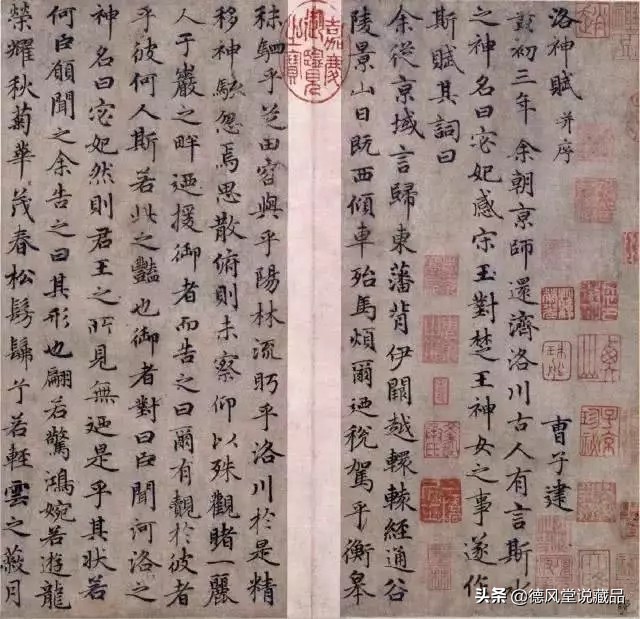 洛神賦 并序 曹子建
黃初三年余朝京師還濟洛川古人有言斯水
之神名曰宓妃感宋玉對楚王神女之事遂作
斯賦其詞曰
余從京域言歸東藩背伊闕越轘轅經通谷
陵景山日既西傾車殆馬煩爾迺稅駕乎衡皋
秣駟乎芝田容與乎陽林流眄乎洛川於是精
移神駭忽焉思散俯則未察仰以殊觀睹一麗
人于巖之畔迺援御者而告之曰爾有覿於彼者
乎彼何人斯若此之豔也御者對曰臣聞河洛之
神名曰宓妃然則君王之所見無迺是乎其狀若
何臣願聞之余告之曰其形也翩若驚鴻婉若遊龍
榮耀秋菊華茂春松髣髴兮若輕雲之蔽月
嘉慶御覽之寶
头条 @德风堂说藏品